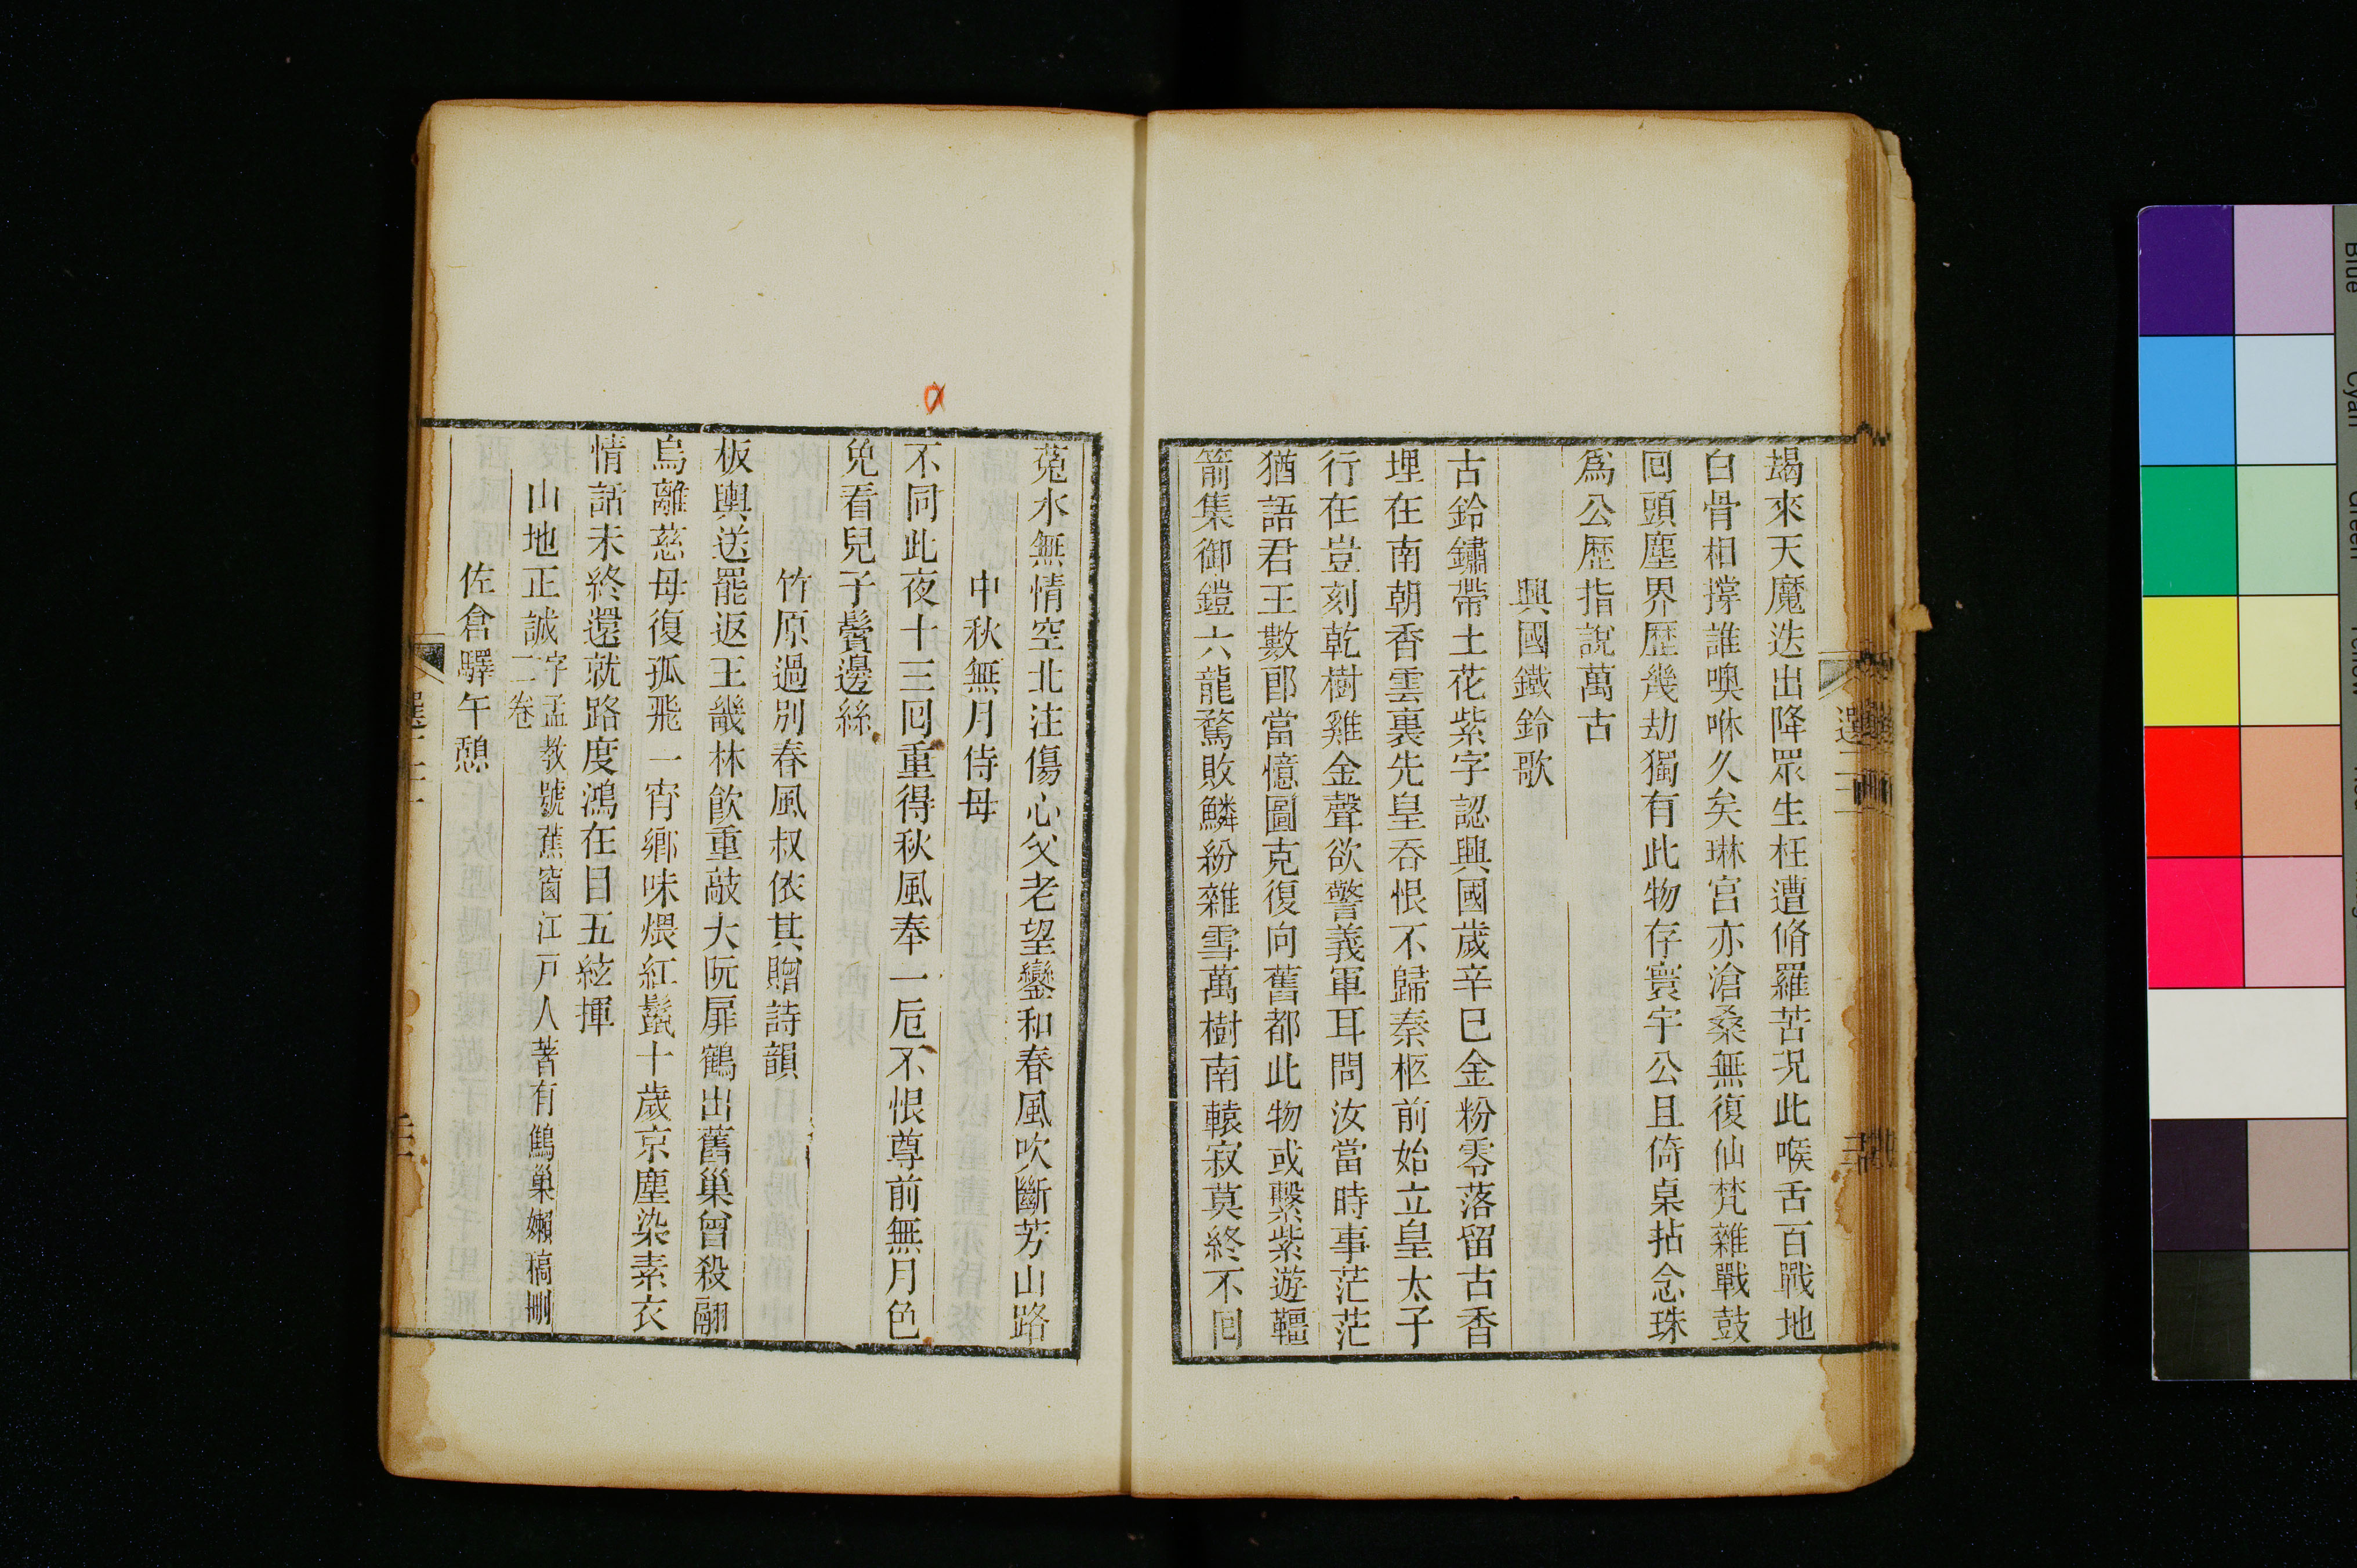 朅來天魔迭出降眾生枉遭脩羅苦況此喉舌百戰地
白骨相撐誰噢咻久矣琳宮亦滄桑無復仙梵雜戰鼓
回頭塵界歷幾劫獨有此物存寰宇公且倚桌拈念珠
爲公歷指說萬古
興國鐵鈴歌
古鈴鏽帶土花紫字認興國歲辛巳金粉零落留古香
埋在南朝香雲裏先皇吞恨不歸秦柩前始立皇太子
行在豈刻乾樹雞金聲欲警義軍耳問汝當時事茫茫
猶語君王數郎當憶圖克復向舊都此物或繫紫遊韁
箭集御鎧六龍騖敗鱗紛雜雪萬樹南轅寂莫終不回
菟水無情空北注傷心父老望鑾和春風吹斷芳山路
中秋無月侍母
不同此夜十三回重得秋風奉一卮不恨尊前無月色
免看兒子鬢邊絲
竹原過別春風叔依其贈詩韻
板輿送罷返王畿林飮重敲大阮扉鶴出舊巢曾殺翮
烏離慈母復孤飛一宵鄉味煨紅鬣十歲京塵染素衣
情話未終還就路度鴻在目五絃揮
山地正誠 字孟教號蕉窗江戸人著有鷦巢嬾稿刪
二卷
佐倉驛午憩